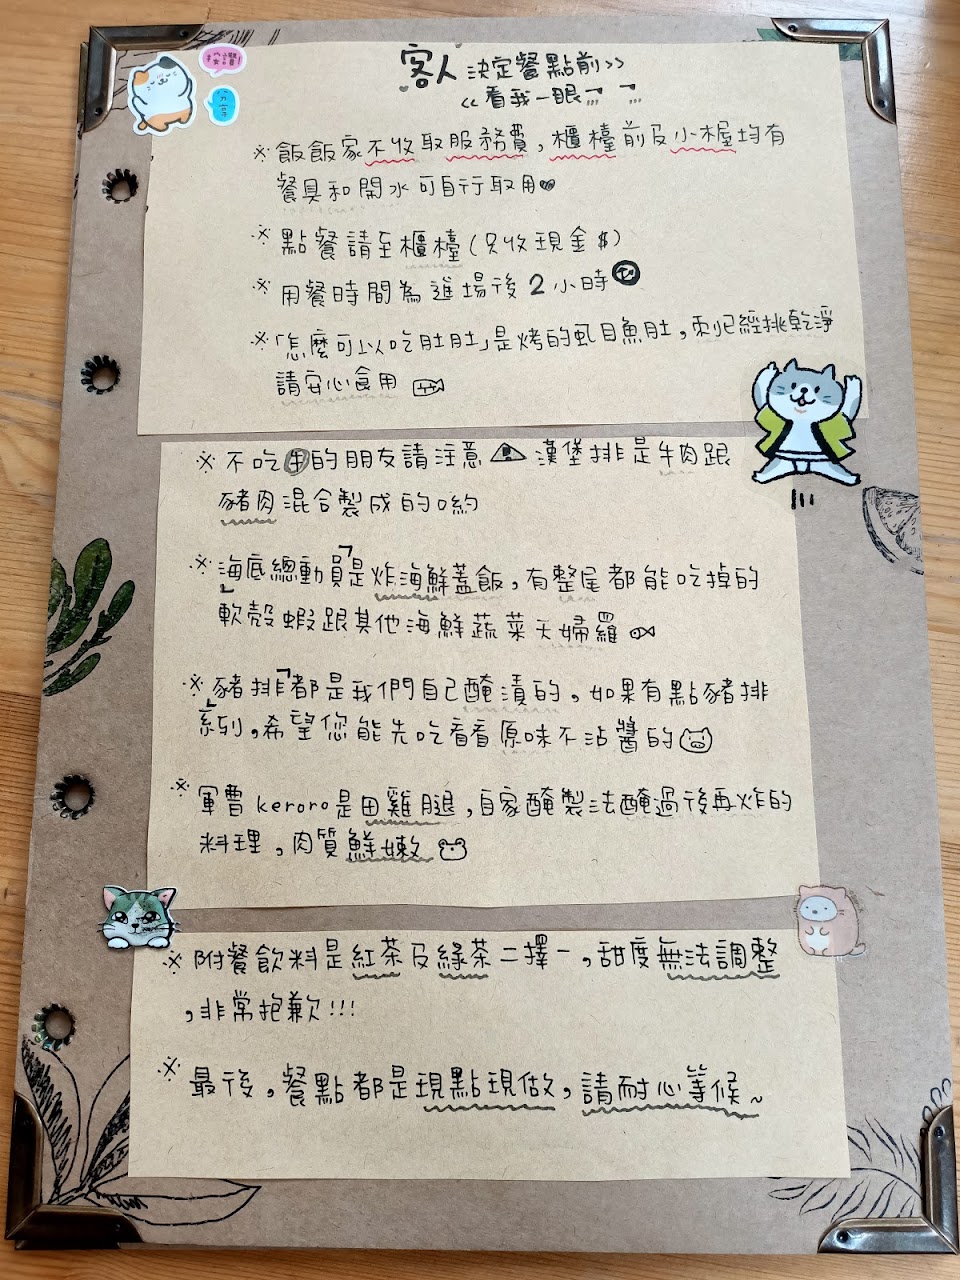 客人 決定餐點前>>
<<看我一眼
※飯飯家不收取服務費，櫃檯前及小木屋均有
餐具和開水可自行取用
※點餐請至櫃檯(只收現金$)
※用餐時間為進場後2小時
※「怎麼可以吃肚肚」是烤的虱目魚肚，刺已經挑乾淨
請安心食用
※不吃牛的朋友請注意 漢堡排是牛肉跟
豬肉混合製成的喲
※「海底總動員」是炸海鮮蓋飯，有整尾都能吃掉的
軟殼蝦跟其他海鮮蔬菜天婦羅
※「豬排」都是我們自己醃漬的，如果有點豬排
系列，希望您能先吃看看原味不沾醬的
※軍曹keroro是田雞腿，自家醃製法醃過後再炸的
料理，肉質鮮嫩
※附餐飲料是紅茶及綠茶二擇一，甜度無法調整
，非常抱歉!!!
※最後，餐點都是現點現做，請耐心等候~